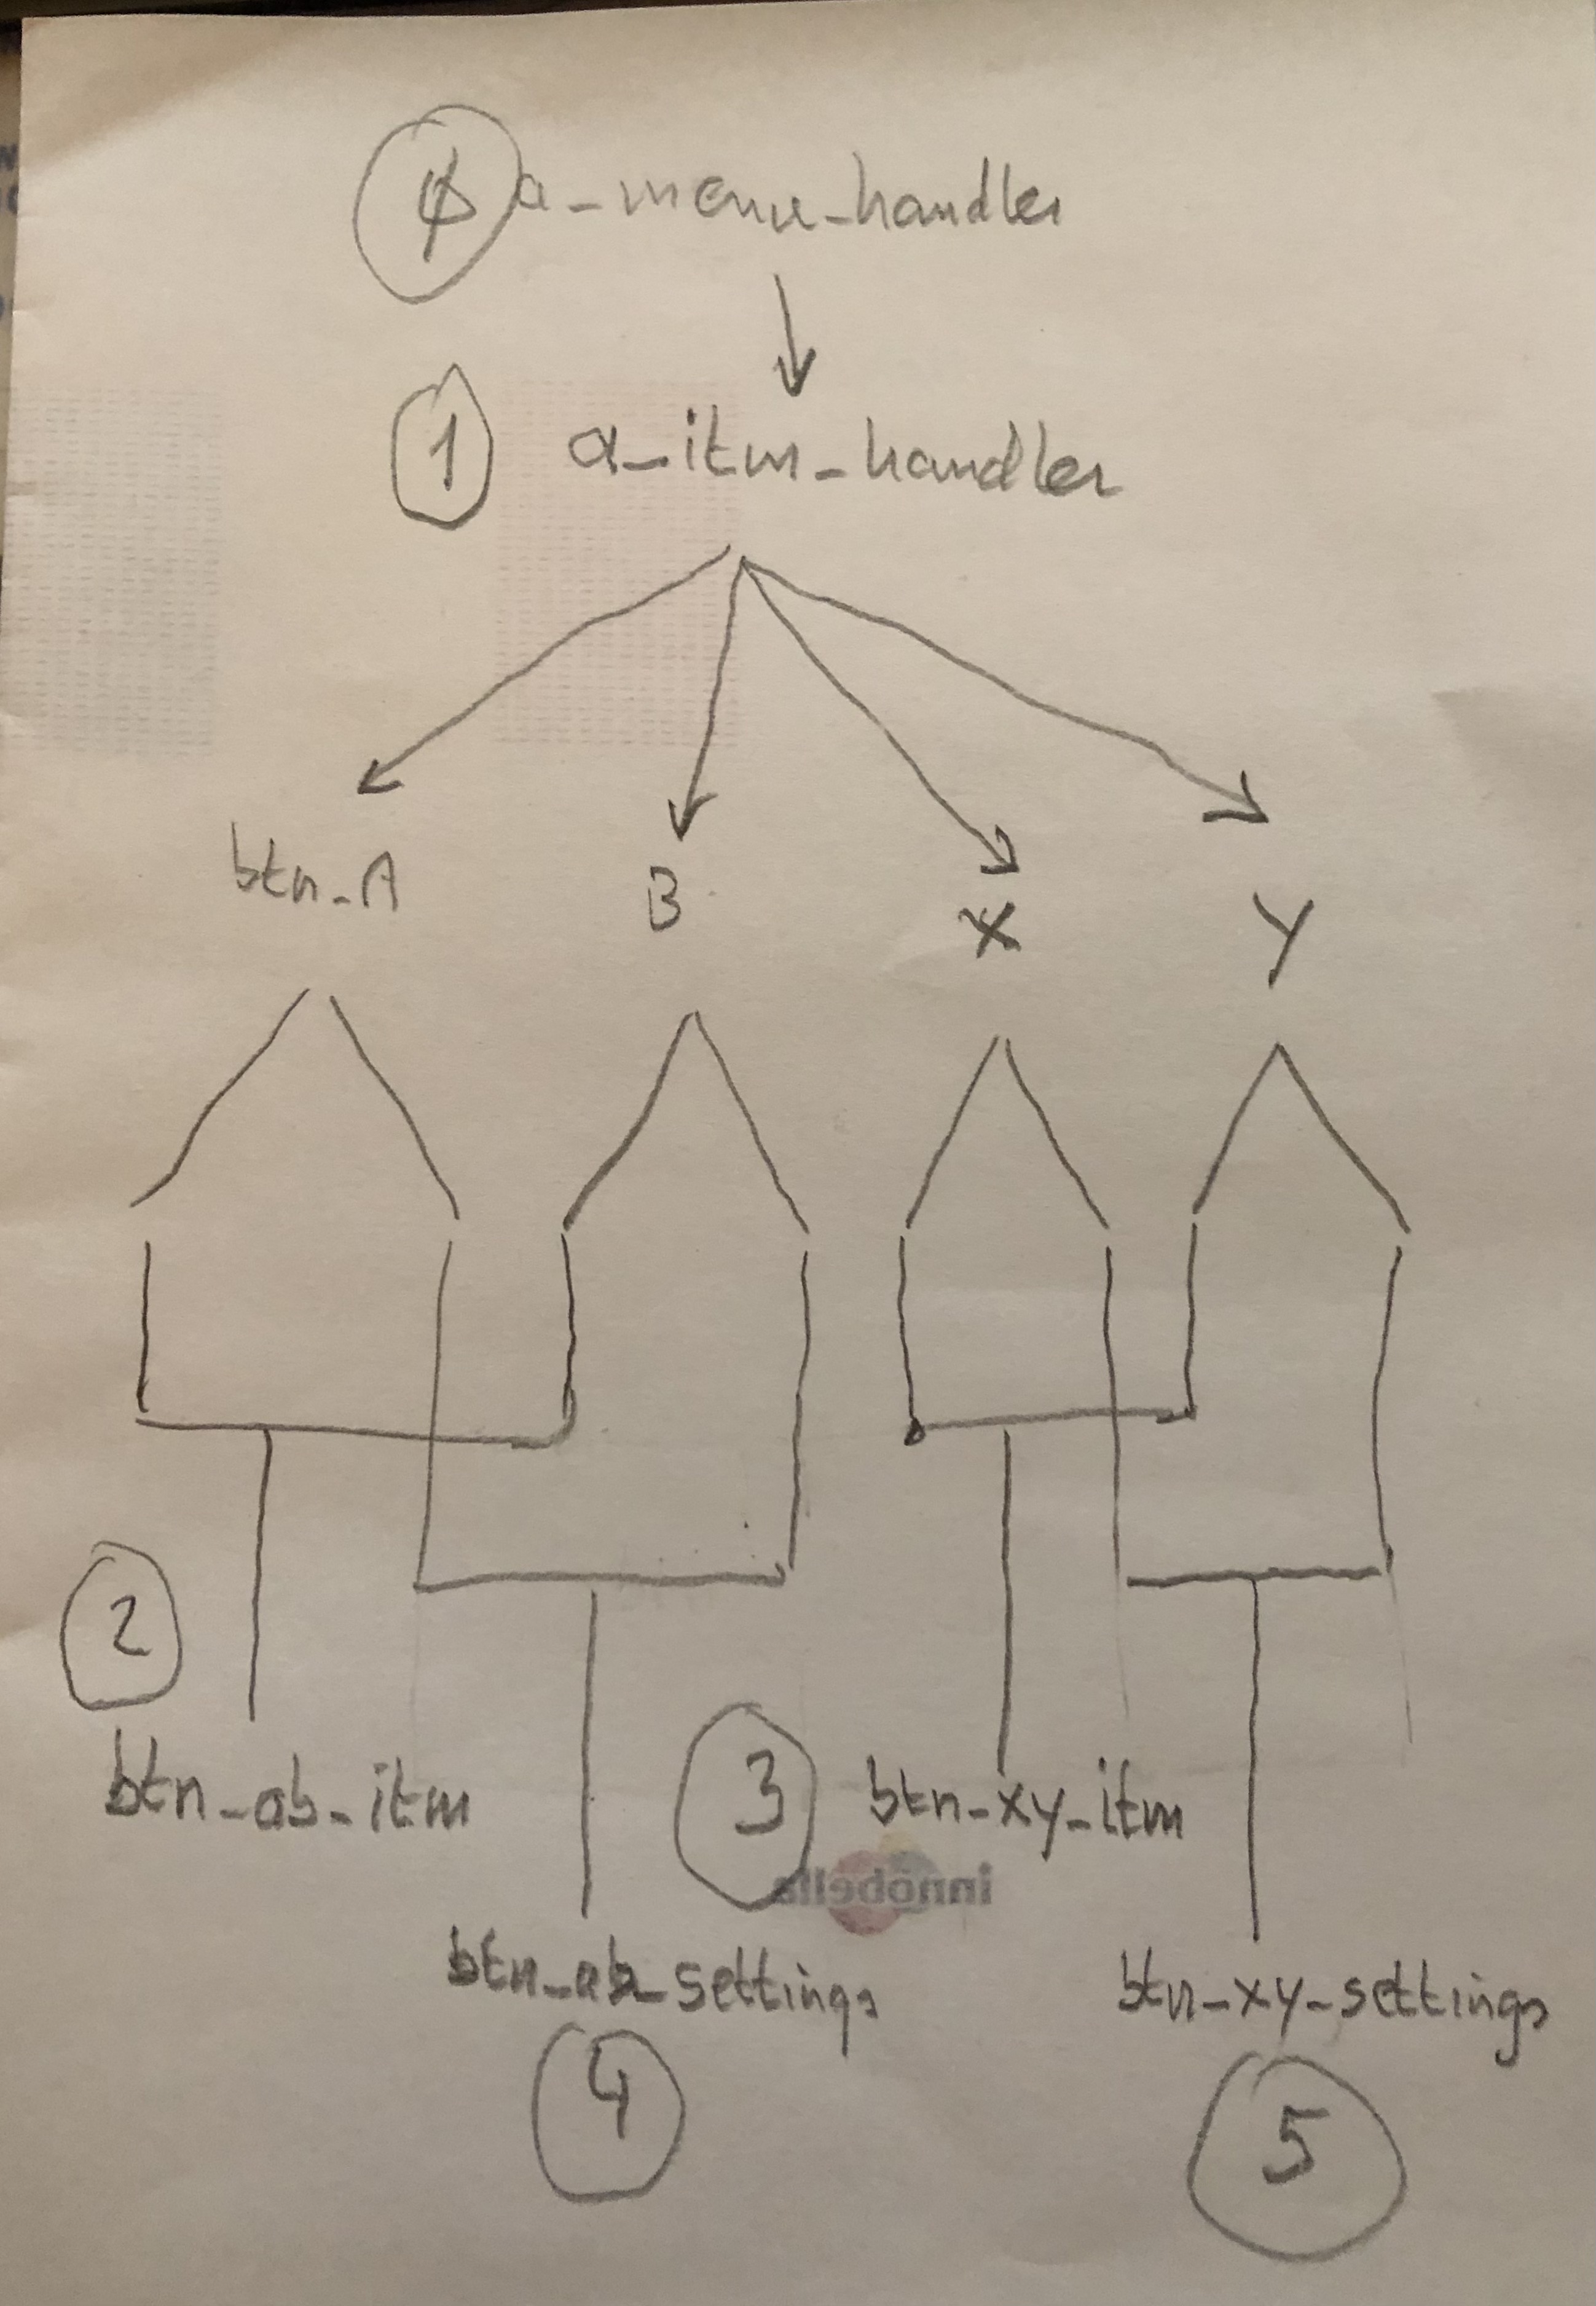 Ø a_menu_handler
1 a_itm_handler
btn_A B X Y
2
btn_ab_itm 3 btn_xy_itm
innobella
btn_ab_settings btn_xy_settings
4 5